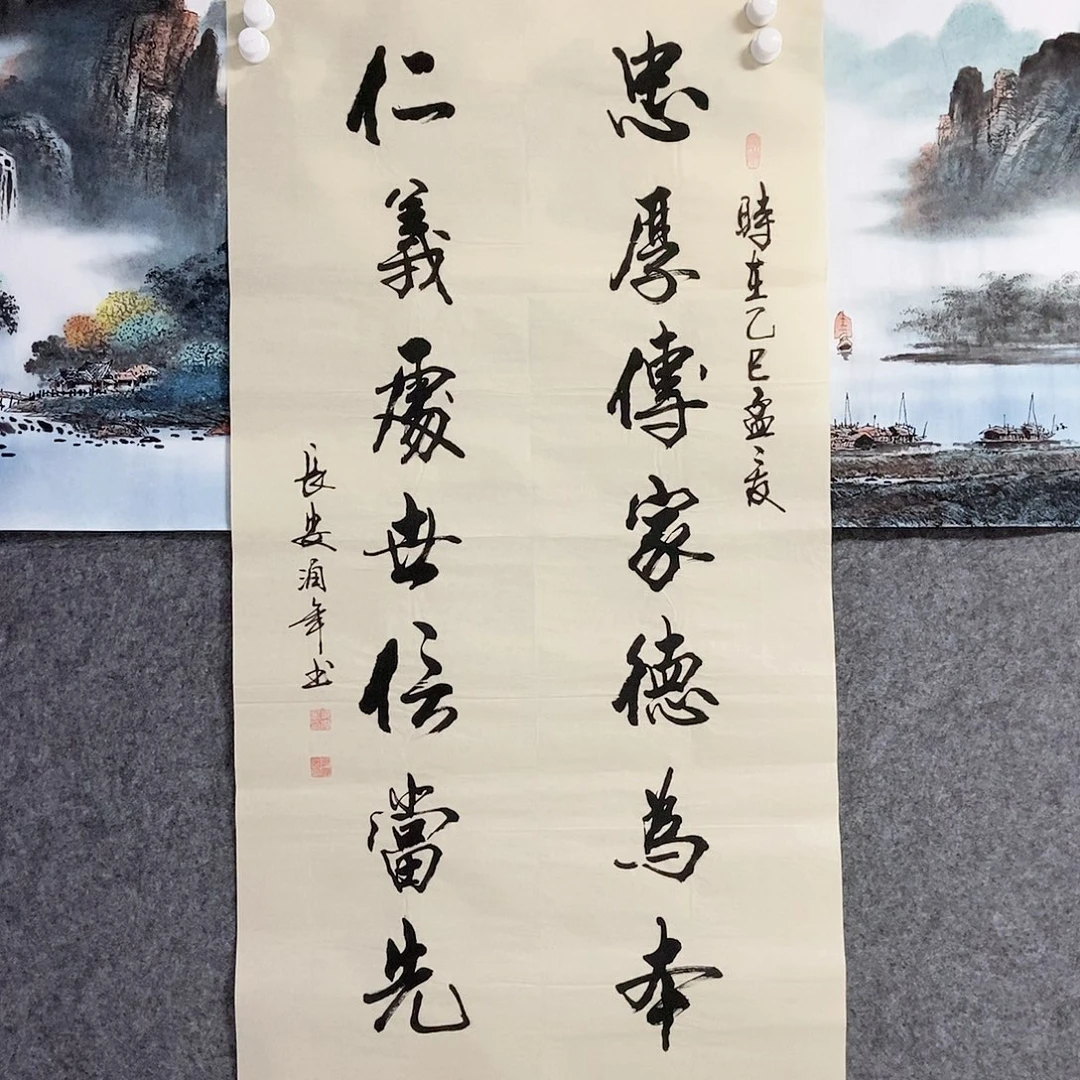 忠厚傳家德為本
時在乙巳孟夏
仁義處世信當先
長安润年书